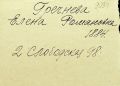 Гречнева
Елена Романовна
1894.
2 Слободская 98.